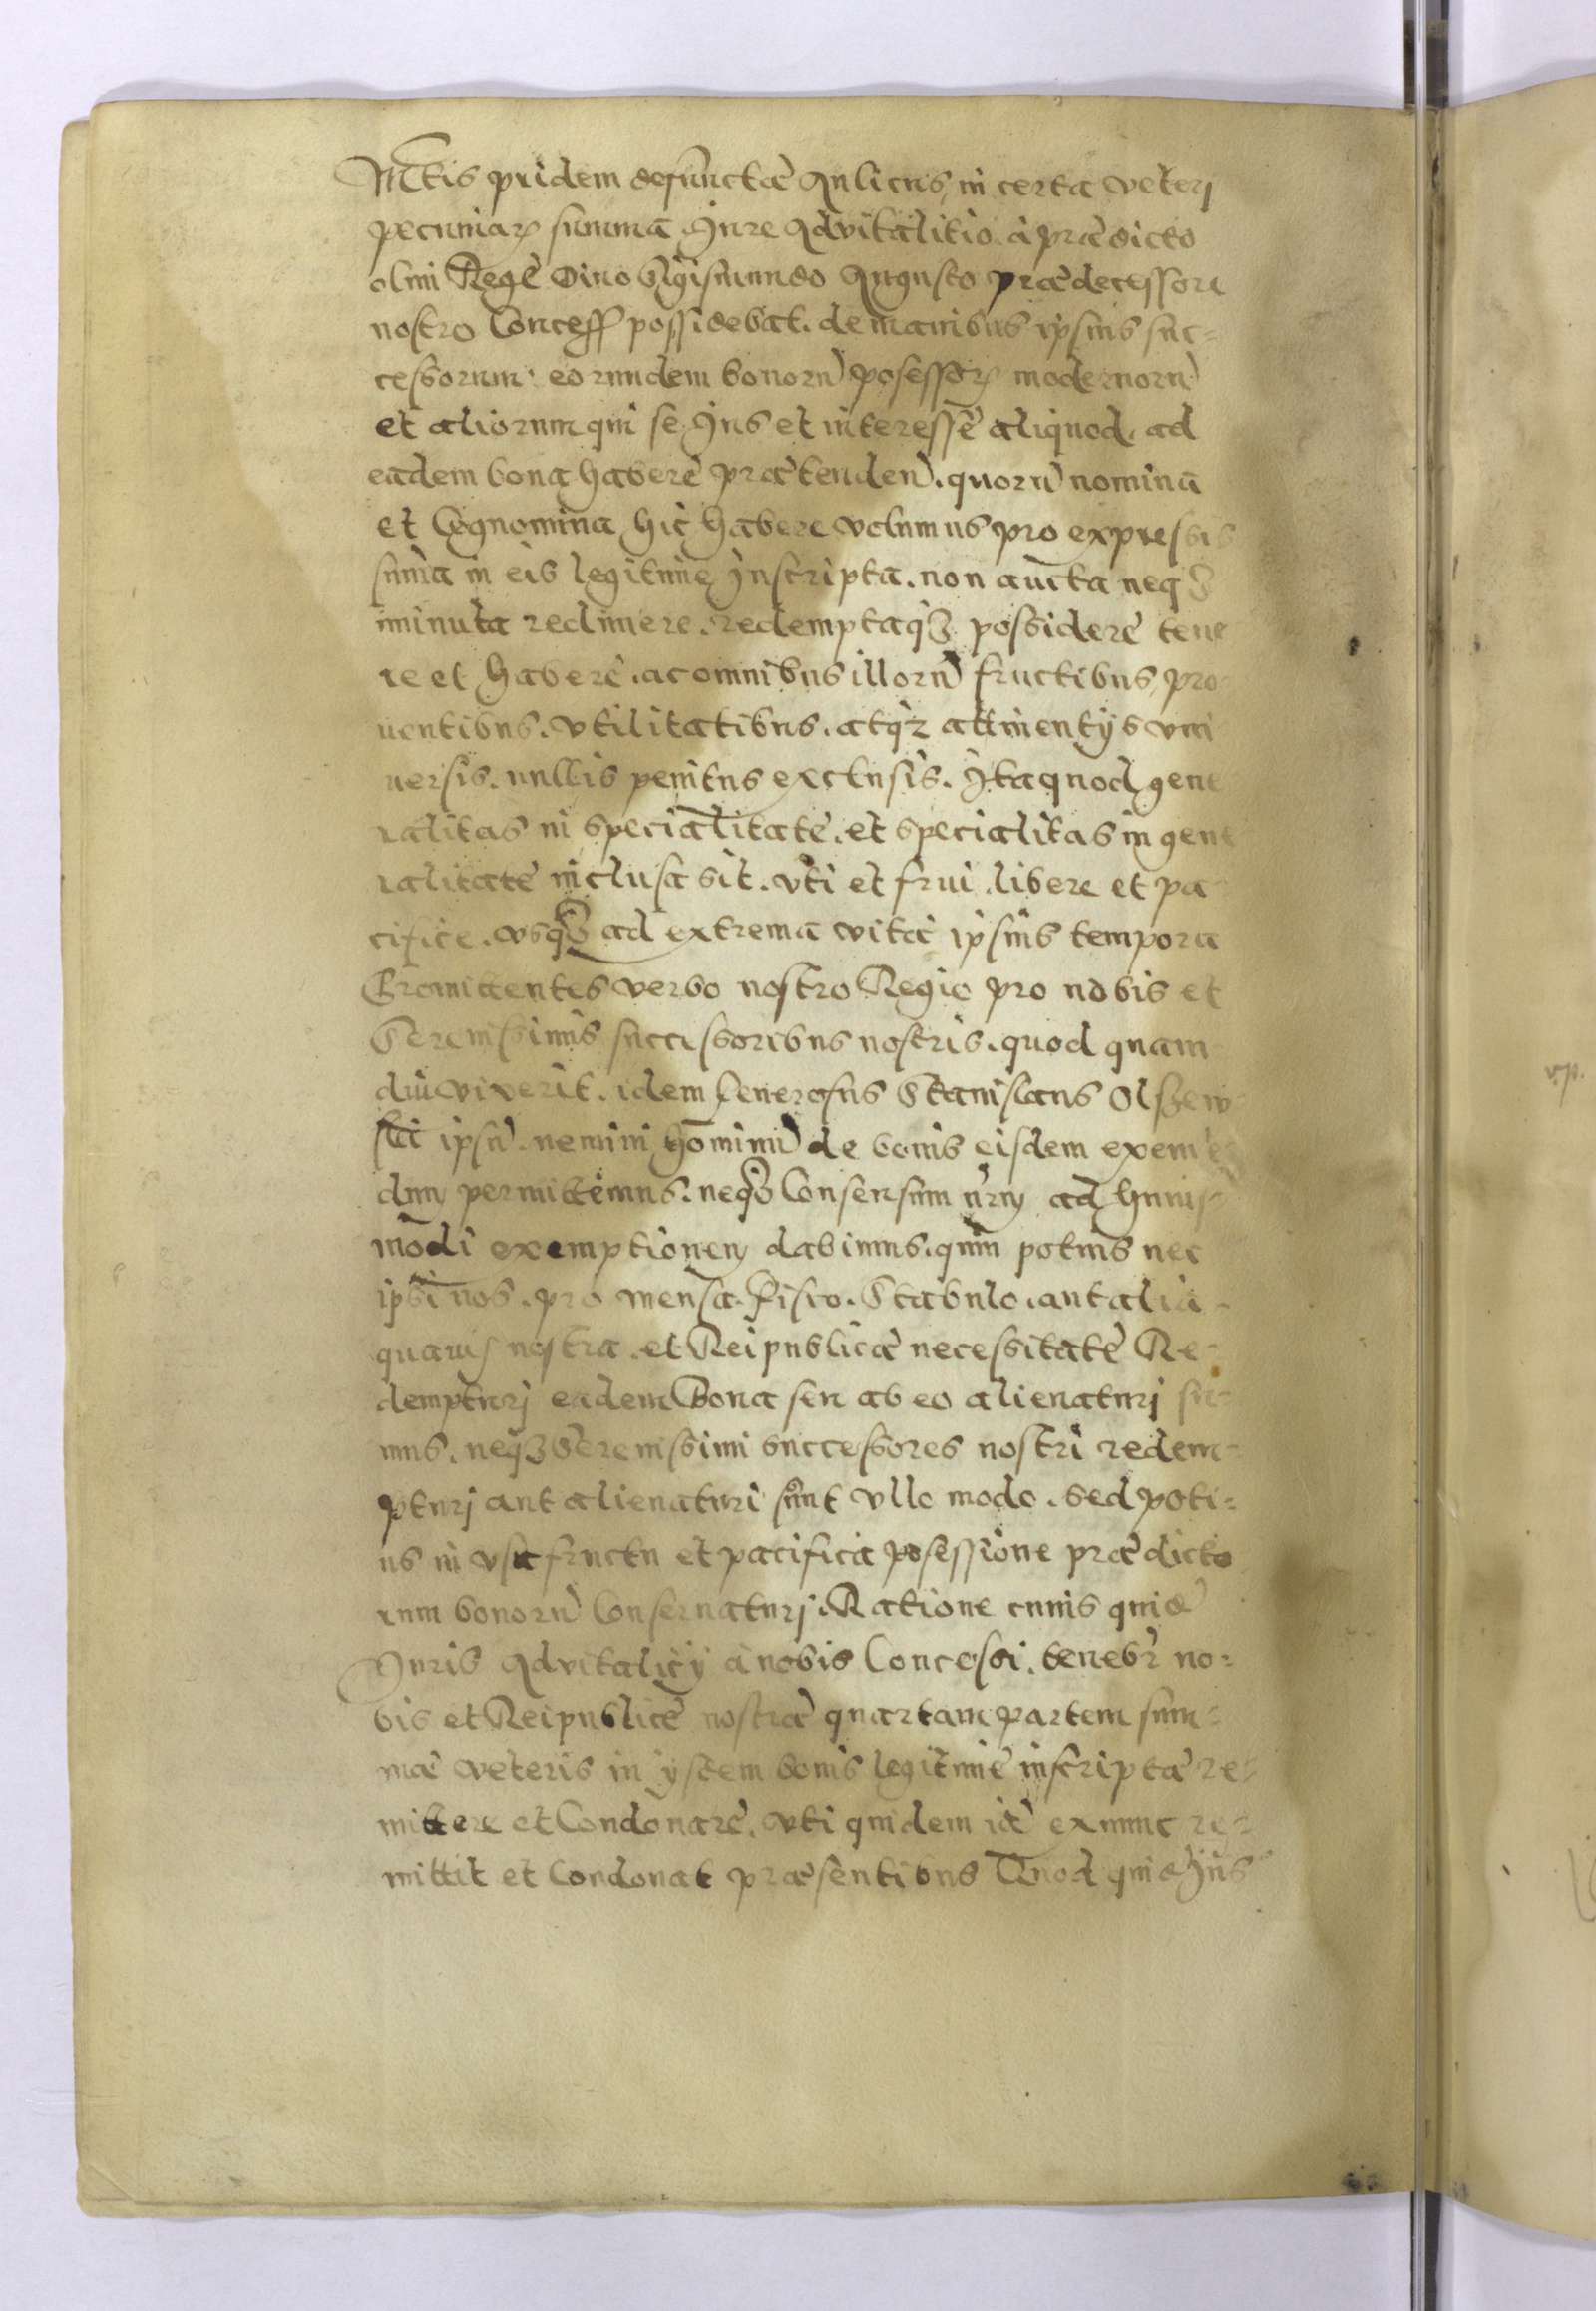 Mtis pridem defunctæ Aulicus, in certa veteri
pecuniarꝫ summa Jure Advitalitio à prædicto
olim Rege Diuo Sigismundo Augusto Prædecessore
nostro Concess possidebat. de manibus ipsius suc=
cessorum. eorundem bonorũ posessorꝫ modernorũ
et aliorum qui se Jus et interesse aliquod. ad
eadem bona habere prætenderũ. quorũ nomina
et Cognomina hic habere volumus pro expressis
suma in eis legitime Inscripta. non aucta neqꝫ
iminuta redimere. redemptaqꝫ possidere tene
re et habere. ac omnibus illorũ fructibus, pro
uentibus. vtilitatibus. atqꝫ attinentÿs vni
uersis. nullis penitus exclusis. Ita quod gene
ralitas in specialitate. et specialitas in gene
ralitate inclusa sit. vti et frui. libere et pa
cifice. vsqꝫ ad extrema vitæ ipsius tempora
Promittentes verbo nostro Regio pro nobis et
Serenissimis successoribus nostris. quod quam
diu vixerit. idem Generosus Stanislaus Olszew
ski ipsũ. nemini hominũ de bonis eisdem exime
dum permittemus. neqꝫ Consensum nr̃m ad huius=
modi exemptionem dabimus. quin potius nec
ipsi nos. pro mensa. Fisco. Stabulo. aut alia
quauis nostra. et Reipublicæ necessitate Re=
dempturj eadem Bona seu ab eo alienaturj su=
mus. neqꝫ Serenissimi successores nostri redem=
pturj aut alienaturi sunt vllo modo. sed poti=
us in vsufructu et pacifica posessione prædicto
rum bonorũ Conseruaturj. Ratione cuius quidẽ
Juris Advitalicÿ à nobis Concessi. tenebr̃ no=
bis et Reipublicæ nostræ quartam partem sum=
mæ veteris in ÿsdem bonis legitime inscriptæ re=
mittere et Condonare. vti quidem iã exnunc re=
mittit et Condonat præsentibus Quod quidẽ Jus